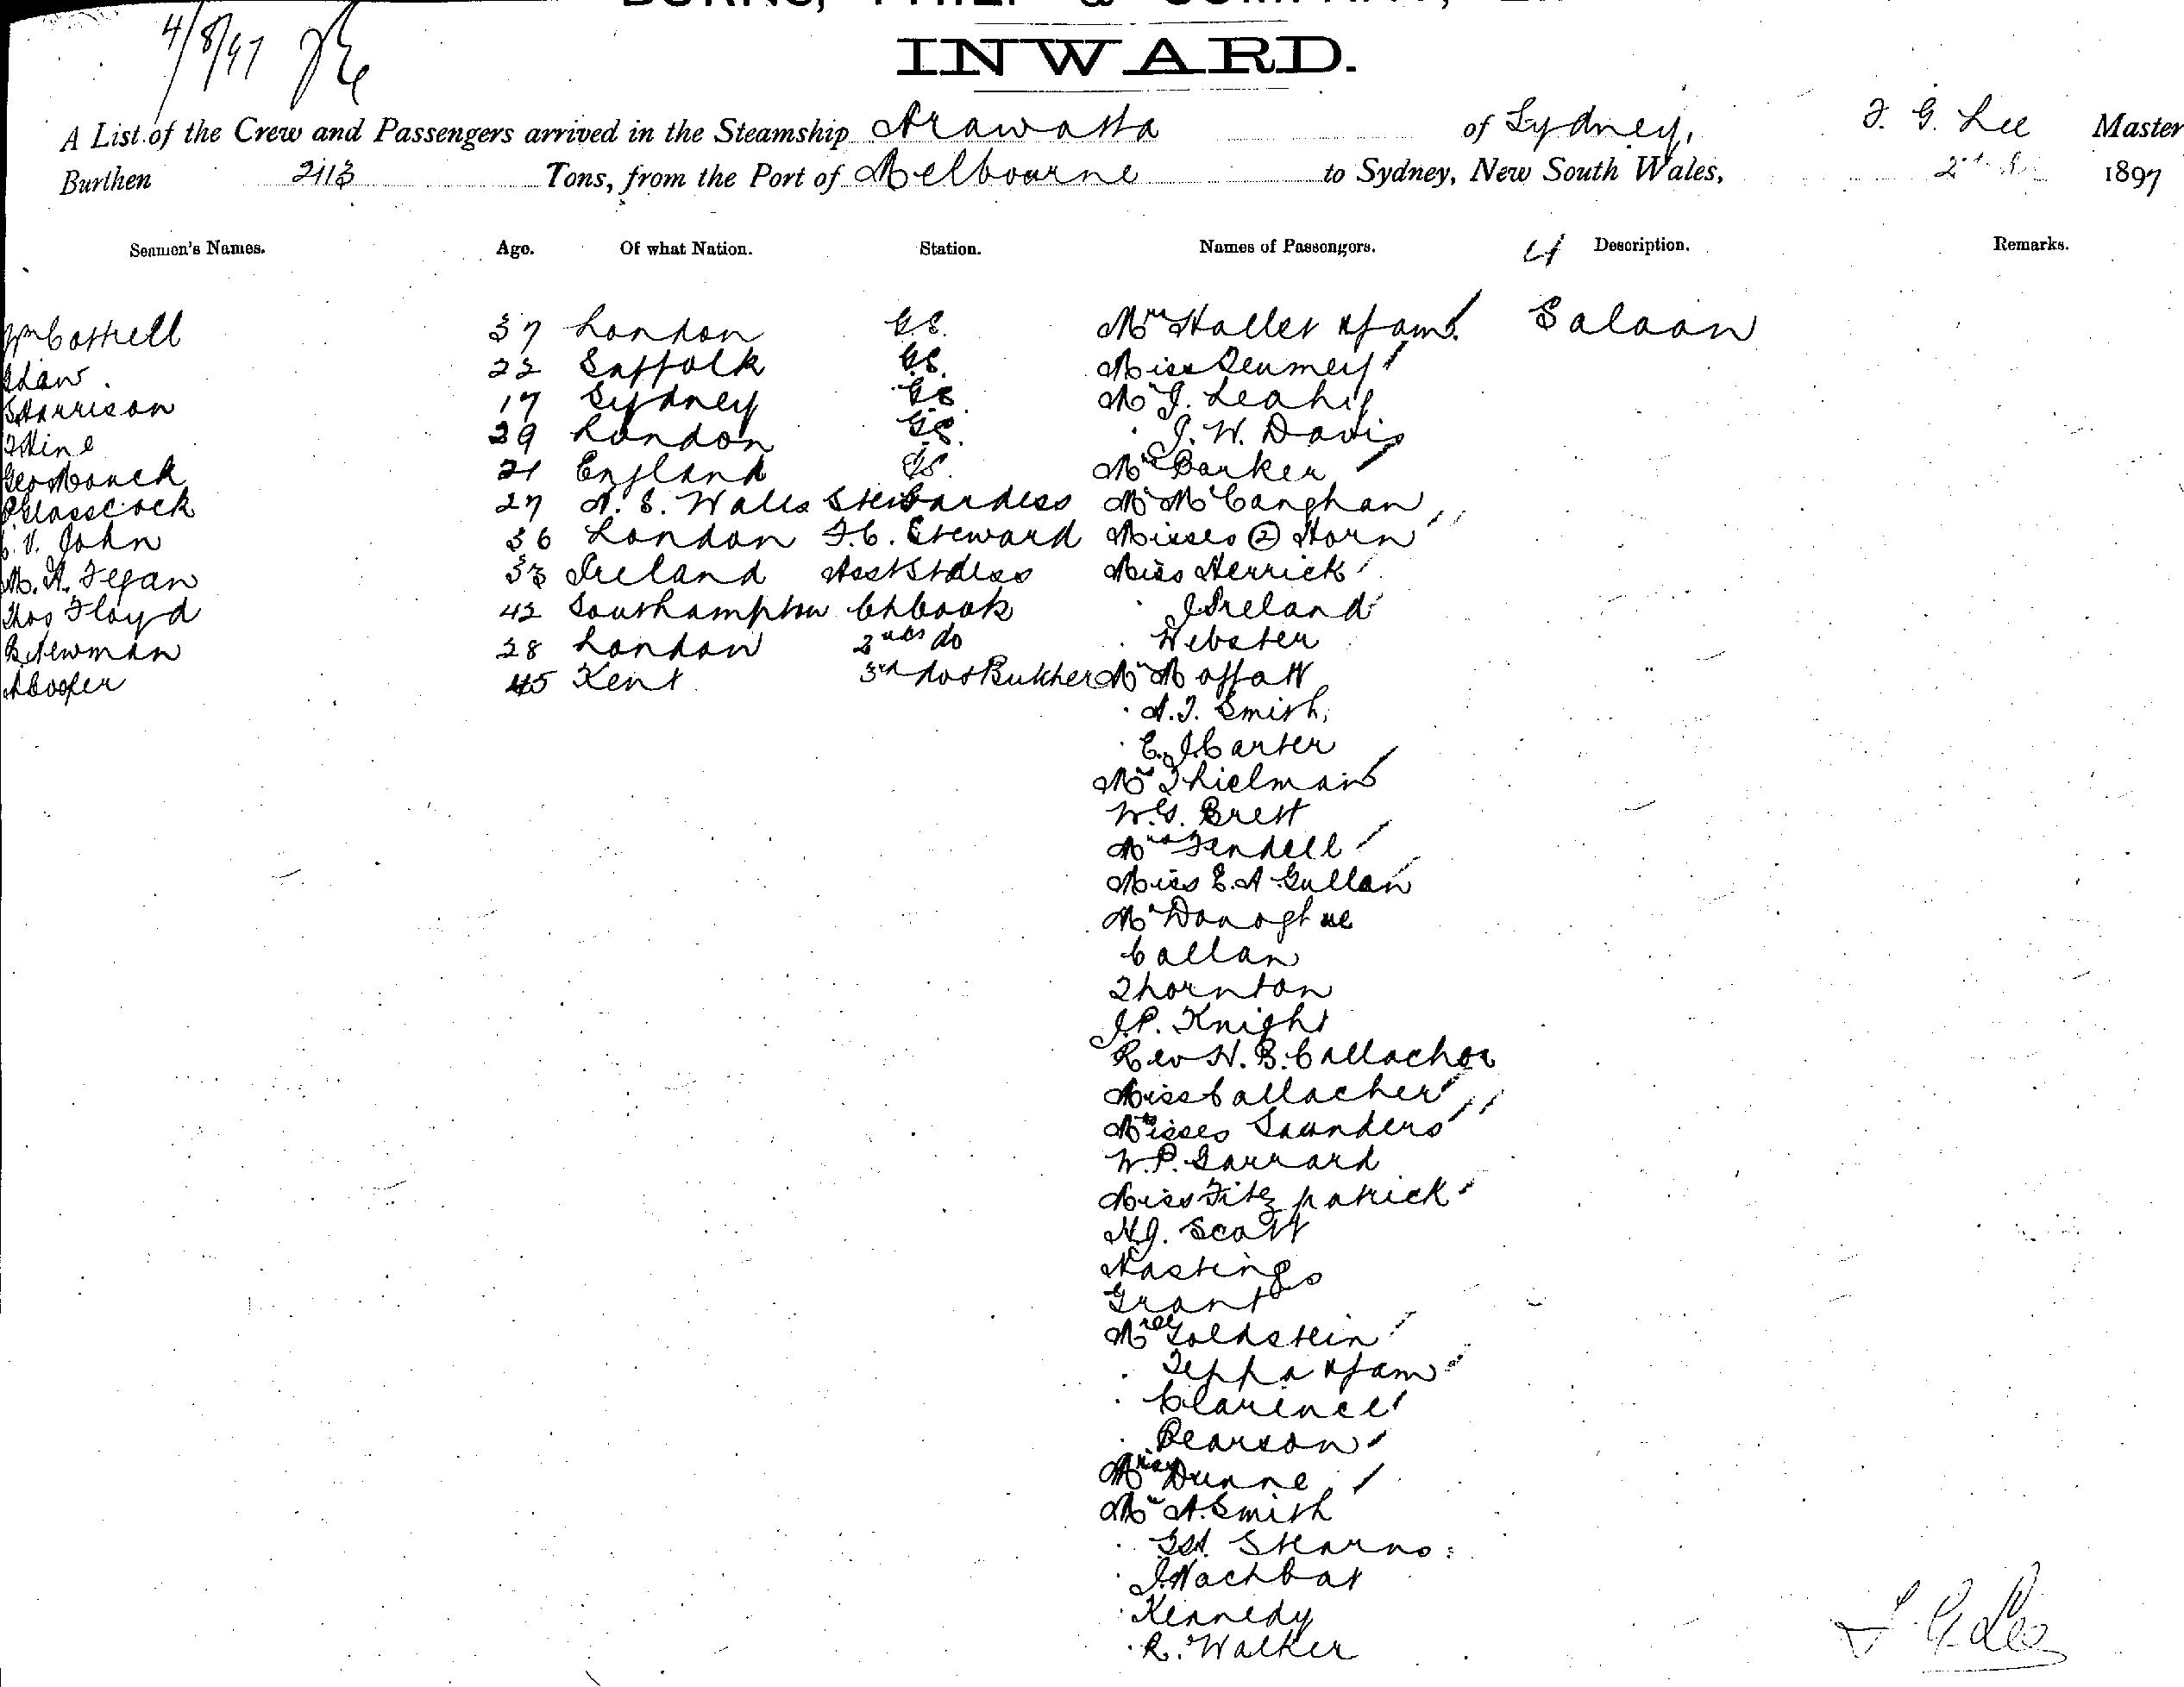 BURNS, PHILP & COMPANY,
4/8/97
INWARD.
A List of the Crew and Passengers arrived in the Steamship Arawatta of Sydney, T. G. Lee Master
Burthen 2113 Tons, from the Port of Melbourne to Sydney, New South Wales, 2nd 1897
Seamen's Names. Age. Of what Nation. Station. Names of Passengers. Description. Remarks.
Wm Cottrell 37 London G.S. Mrs Haller & fam. Saloon
Law. 22 Suffolk G.S. Miss
Harrison 17 Sydney G.S. Mr J. Leahy
Hine 29 London G.S. J. W. Davis
Geo Monck 21 England G.S. Mrs Barker
Glasscock 27 N. S. Wales Stewardess Mr McCanghan
V. John 36 London F.C. Steward Misses 2 Horn
M. A. Fegan 33 Ireland Asst Stdess Miss Herrick
Thos Floyd 42 Southampton Ch Cook Ireland
B. Newman 28 London 2nd do Webster
A Cooper 45 Kent 3rd do & Butcher Mr Moffatt
A. J. Smith,
E. J. Carter
Mrs Thielman
W. G. Brett
Mrs Fendell
Miss E. A. Gullan
Mr Donoghue
Callan
Thornton
J. P. Knight
Rev H. B. Callachor
Miss Callacher
Misses Saunders
W. P. Garrard
Miss Fitz patrick
H. J. Scott
Hastings
Grant
Goldstein
Teppa & fam
Clarence
Pearson
Dunne
Mr A. Smith
Stearns
J. Nachbar
Kennedy
R. Walker
T. G. Lee